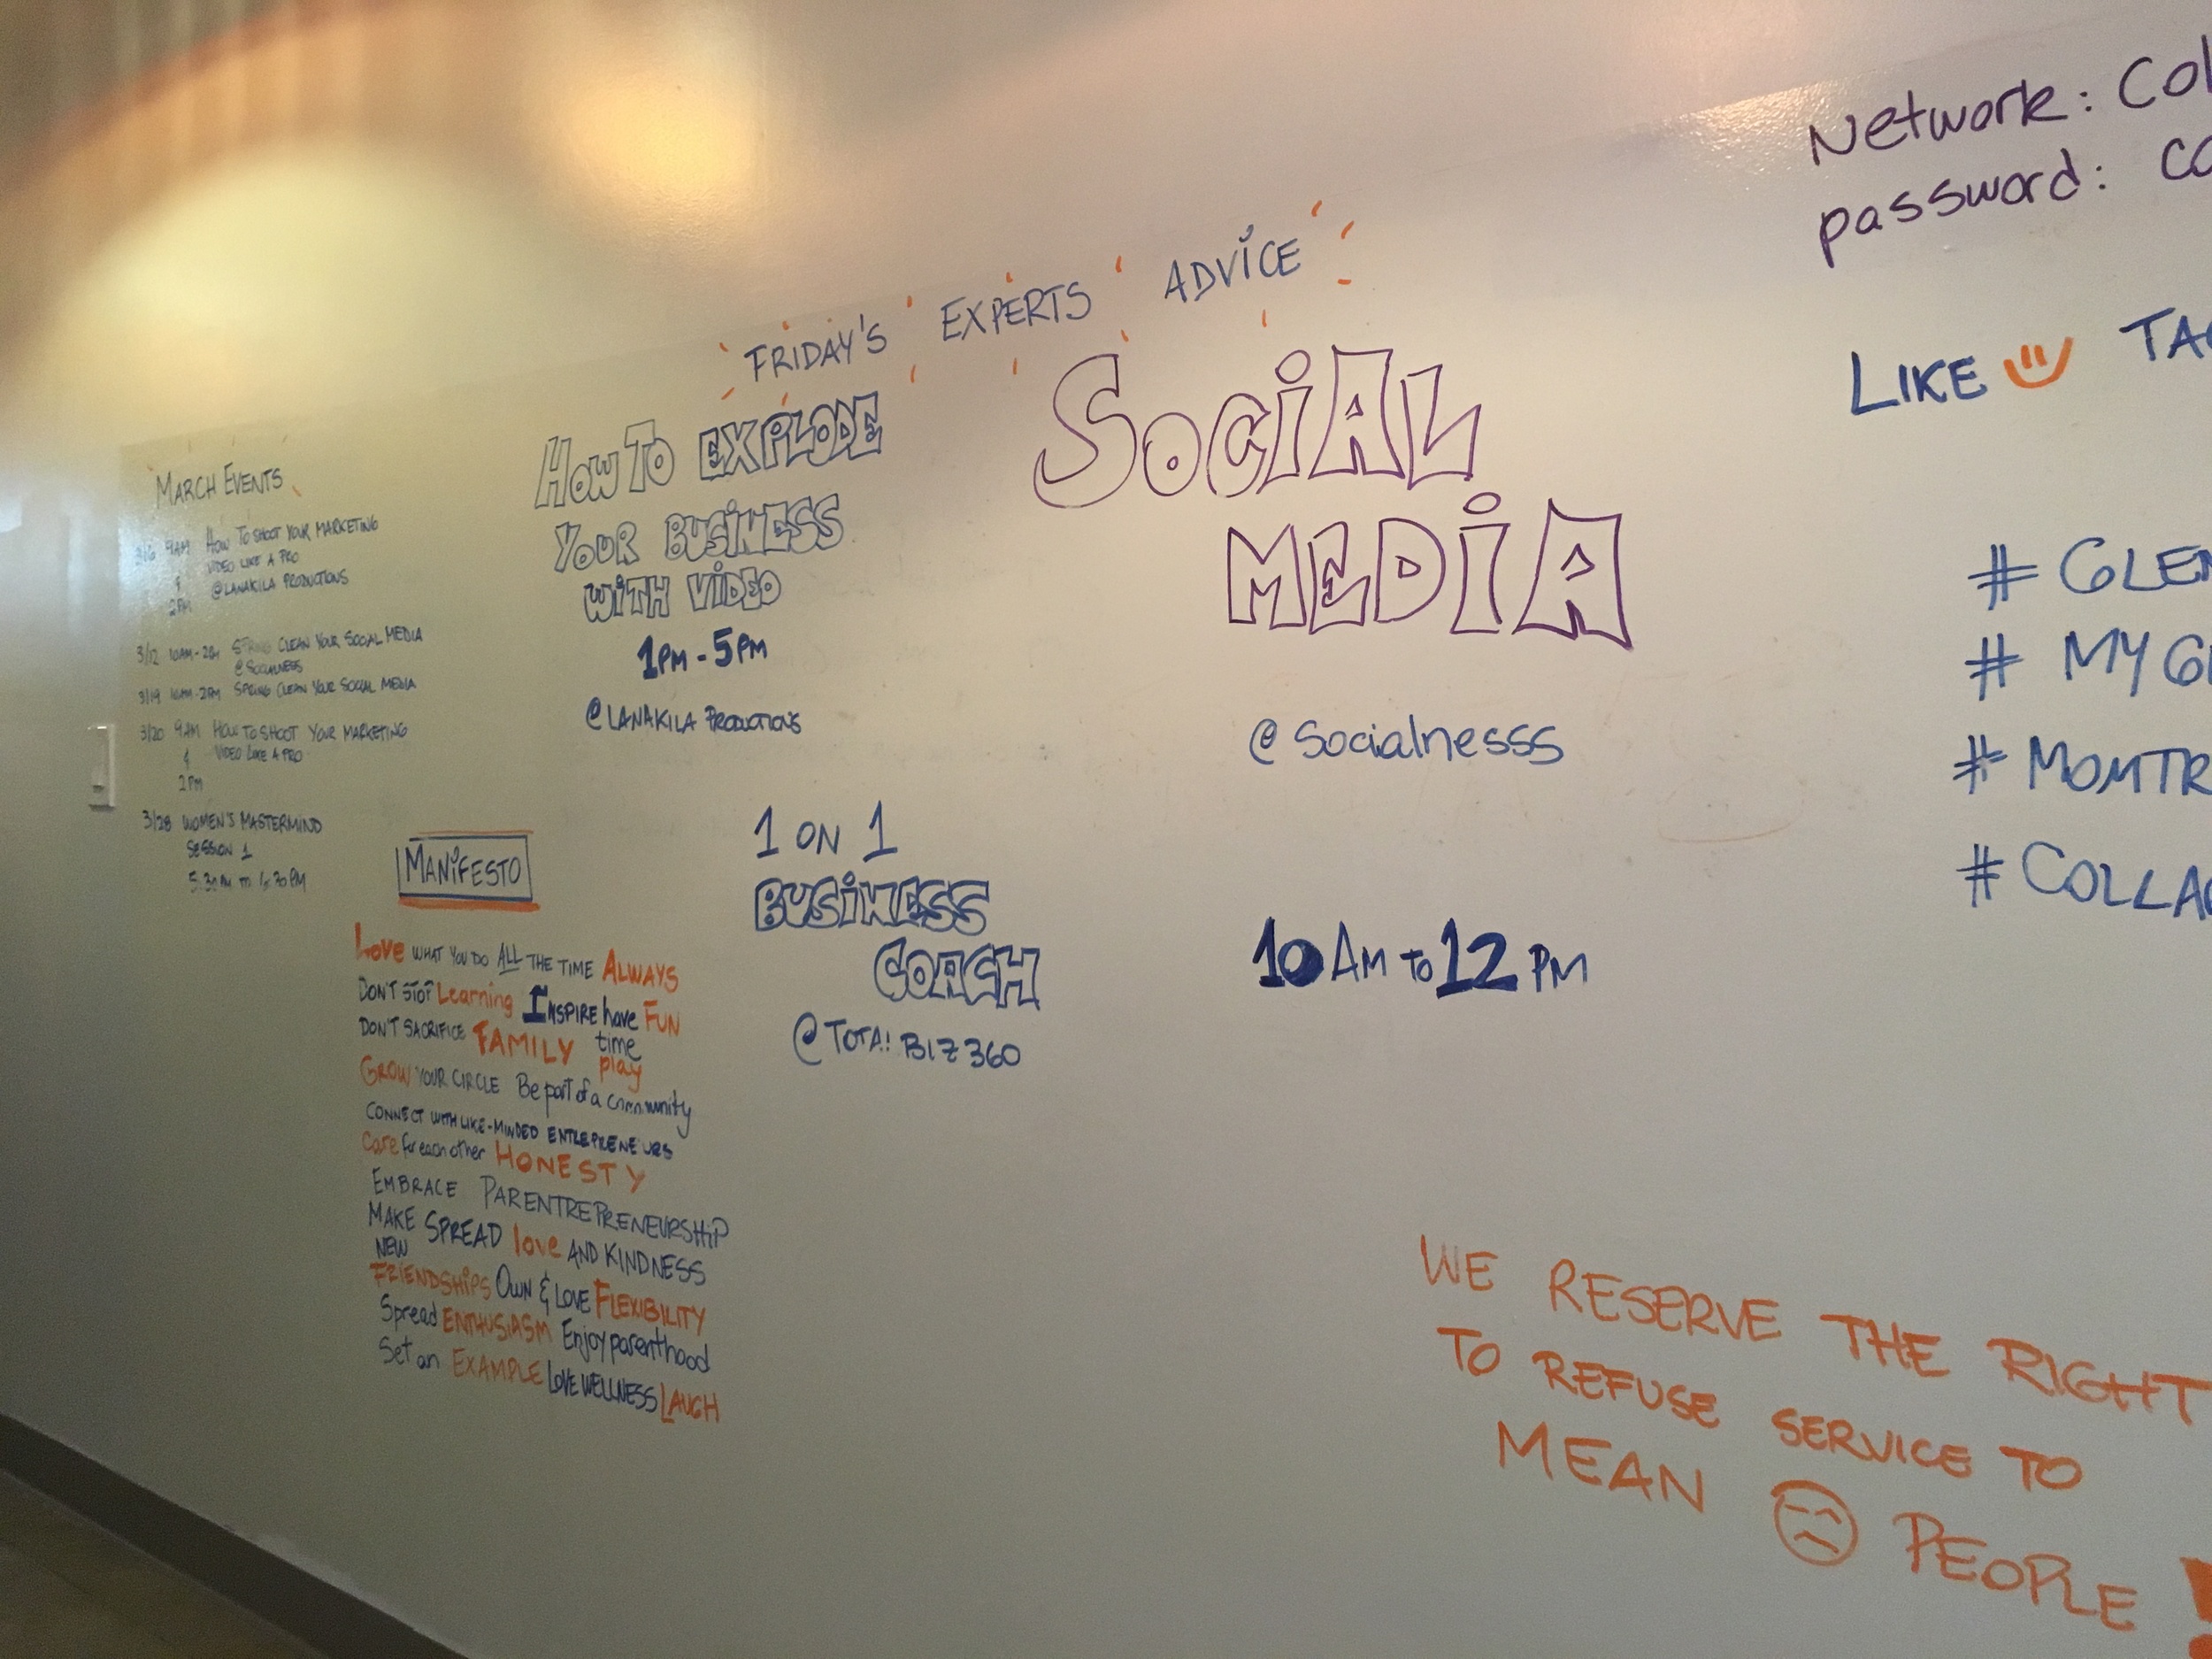 MARCH EVENTS
9AM HOW TO SHOOT YOUR MARKETING
& VIDEO LIKE A PRO
2PM @LANAKILA PRODUCTIONS
3/12 10AM-2PM CLEAN YOUR SOCIAL MEDIA
@SOCIALNESS
3/19 10AM-2PM SPRING CLEAN YOUR SOCIAL MEDIA
3/20 9AM HOW TO SHOOT YOUR MARKETING
& VIDEO LIKE A PRO
2PM
3/28 WOMEN'S MASTERMIND
SESSION 1
FRIDAY'S EXPERTS ADVICE
HOW TO EXPLODE
YOUR BUSINESS
WITH VIDEO
1PM - 5PM
@LANAKILA PRODUCTIONS
1 ON 1
BUSINESS
COACH
@TOTAL BIZ 360
SOCIAL
MEDIA
@Socialnesss
10 AM TO 12 PM
MANIFESTO
LOVE WHAT YOU DO ALL THE TIME ALWAYS
DON'T STOP Learning INSPIRE have FUN
DON'T SACRIFICE FAMILY time
play
GROW YOUR CIRCLE Be part of a community
CONNECT WITH LIKE-MINDED ENTREPRENEURS
Care for each other HONESTY
EMBRACE PARENTREPRENEURSHIP
MAKE SPREAD love AND KINDNESS
NEW
FRIENDSHIPS OWN & LOVE FLEXIBILITY
Spread ENTHUSIASM Enjoy parenthood
Set an EXAMPLE LOVE WELLNESS LAUGH
Network:
password:
LIKE
WE RESERVE THE RIGHT
TO REFUSE SERVICE TO
MEAN PEOPLE !